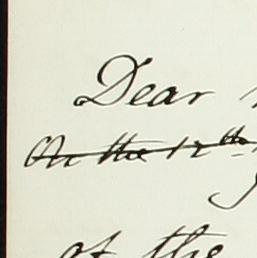 Dear
On the 12th
of the